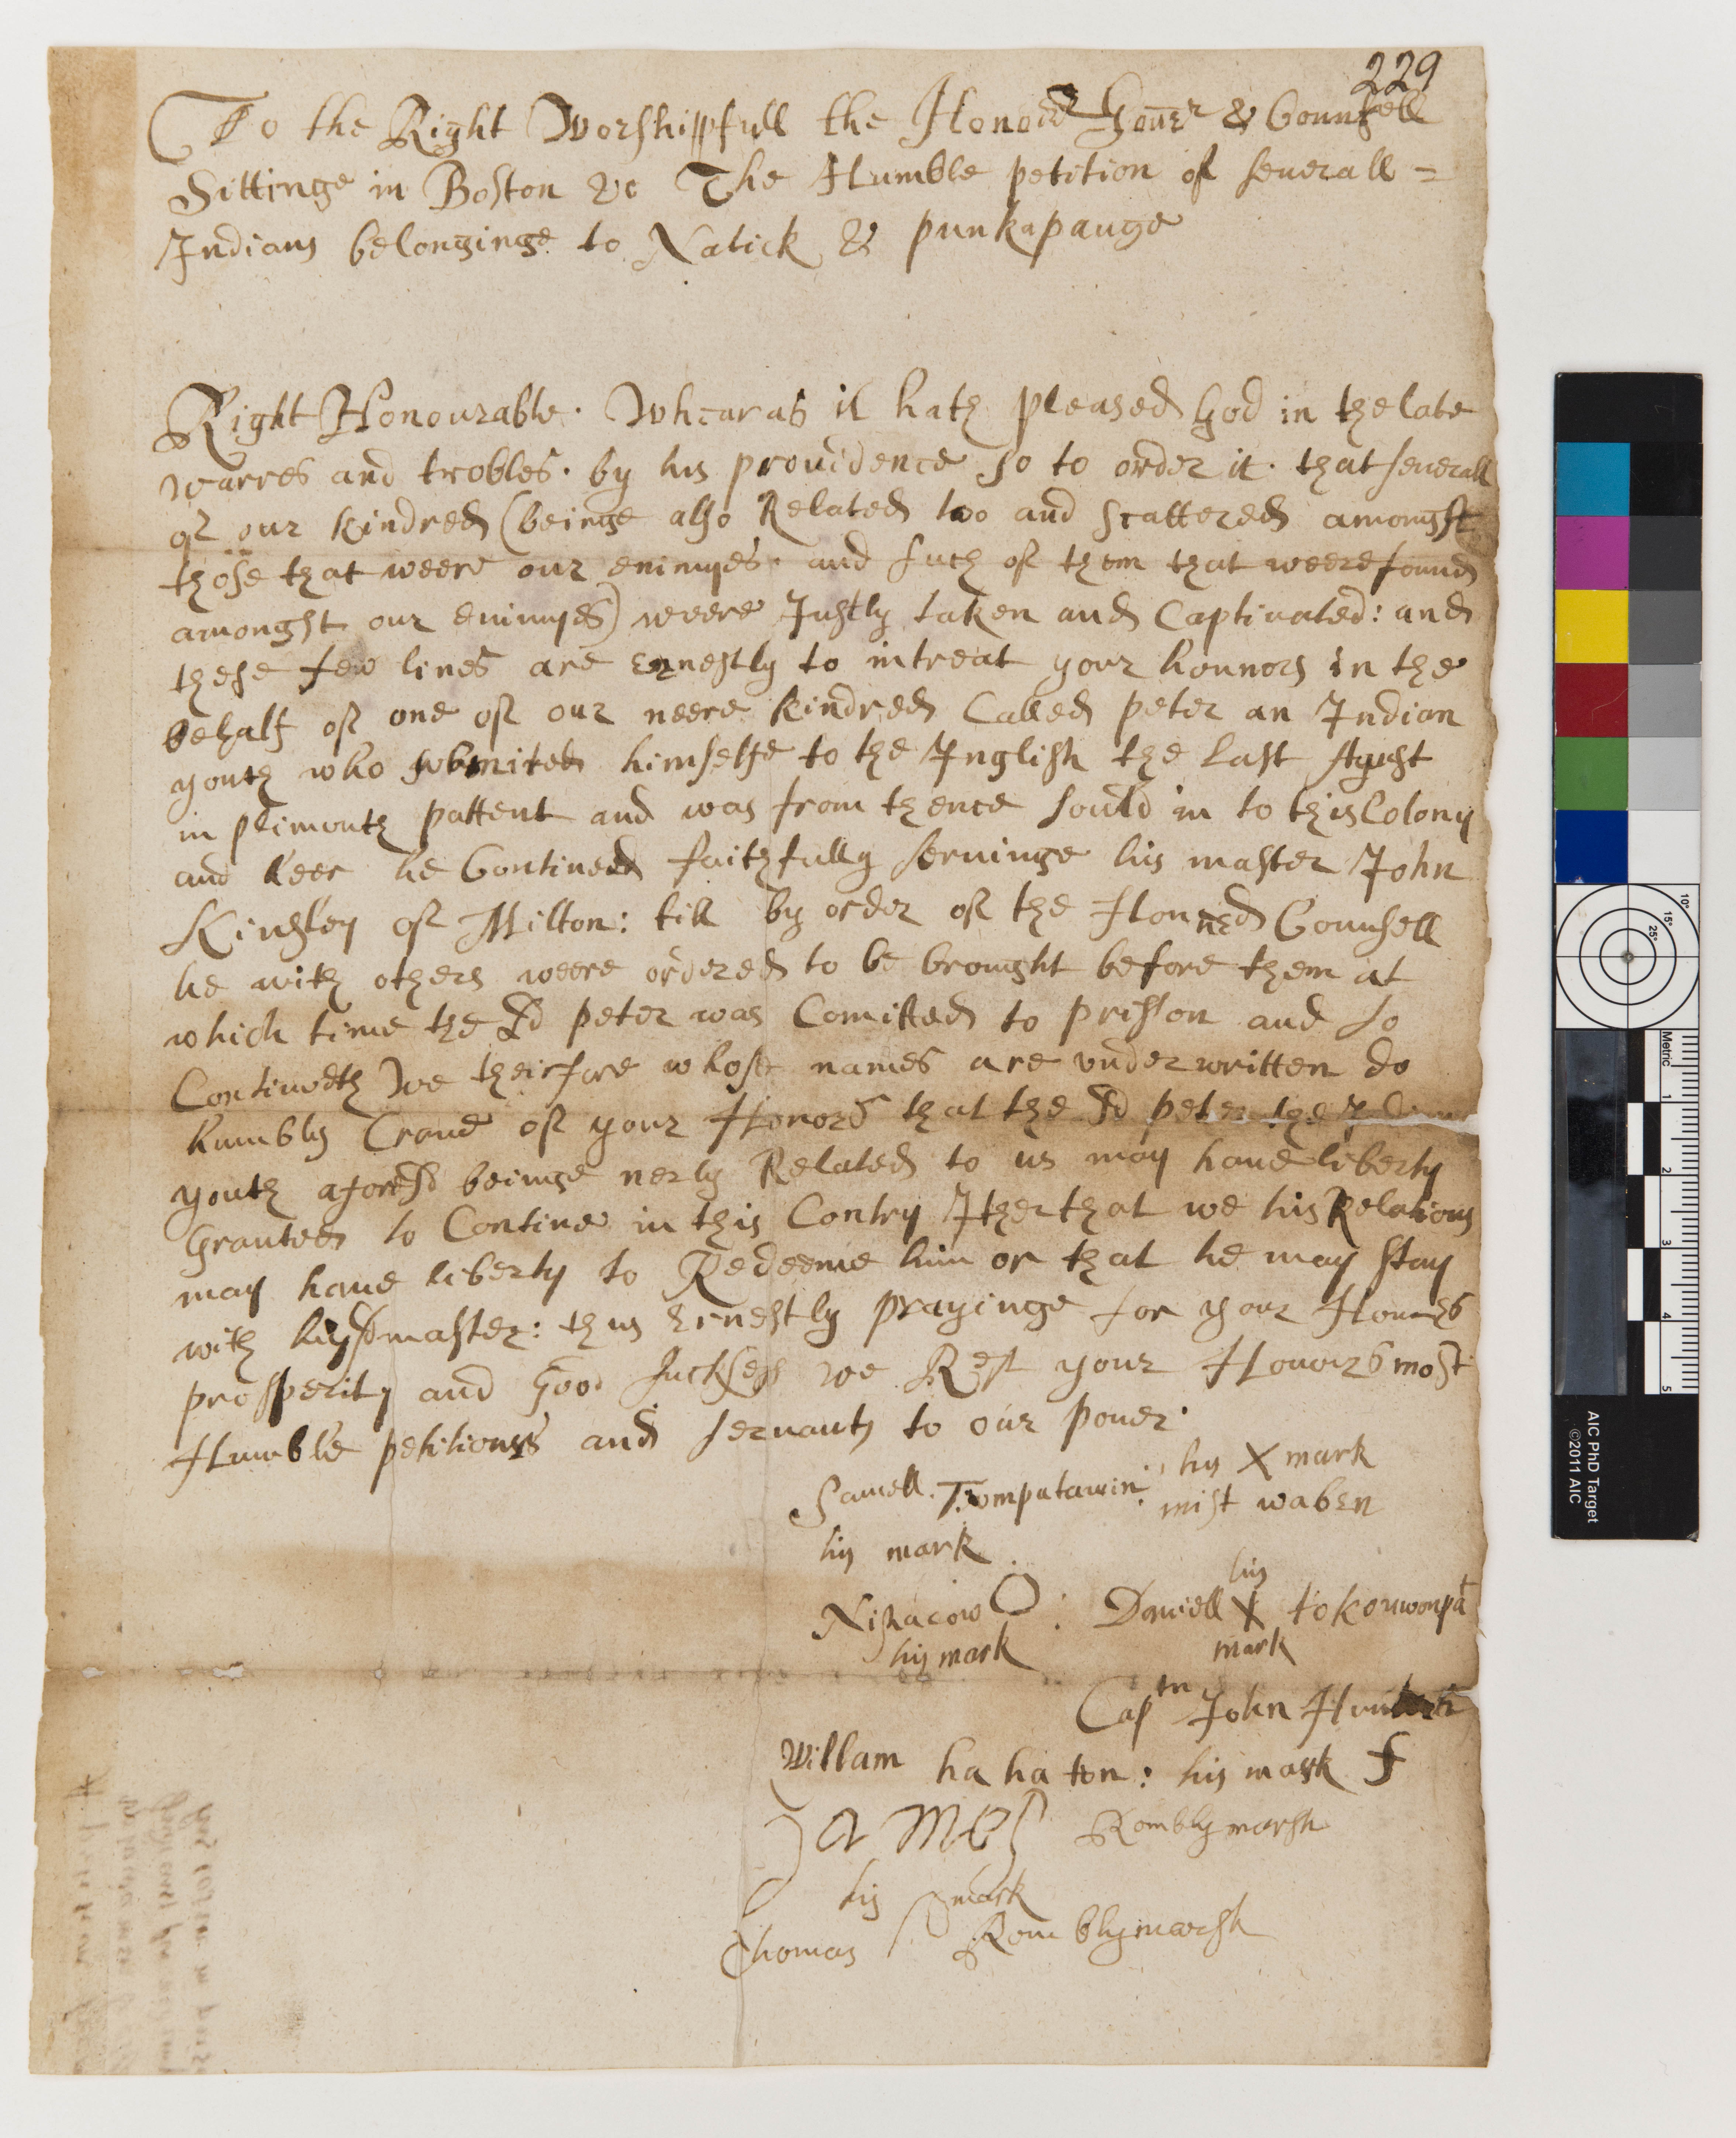 229
To the Right Worshippfull the Honord Gouer & Counsell
Sittinge in Boston &c The Humble petition of seuerall =
Indians belonginge to Natick & punkapauge
Right Honourable. Whearas it hath pleased God in the late
warres and trobles. by his prouidence so to order it. that seuerall
of our kindred (beinge also Related too and scattered amongst
those that weere our enimyes. and such of them that weere found
amongst our enimyes) weere Justly taken and Captiuated: and
these few lines are Ernestly to intreat your honnors in the
behalf of one of our neere kindred Called peter an Indian
youth who submited himselfe to the Inglish the last Agust
in plimouth pattent and was from thence sould in to this Colony
and heer he Contineed faithfully seruinge his master John
Kingsley of Milton: till by order of the Honnred Counsell
he with others weere ordered to be brought before them at
which time the sd peter was Comitted to prisson and so
Continueth We theirfore whose names are vnder written do
humbly Craue of your Honors that the sd peter the
youth aforesd beinge nerly Related to us may haue liberty
Granted to Contine in this Contry Ither that we his Relations
may haue liberty to Redeeme him or that he may stay
with his sd master: thus Ernestly prayinge for your Honnrs
prosperity and good suckses we Rest your Honnors most
Humble petitioners and seruants to our power.
Samell. Tompatawin: his X mark
his mark mist waben
his
Nishacow O : Daniell X tokouwompat
his mark mark
Captn John Hunter
Willam ha ha ton: his mark f
James Rombly marsh
his mark
Thomas Romblymarsh